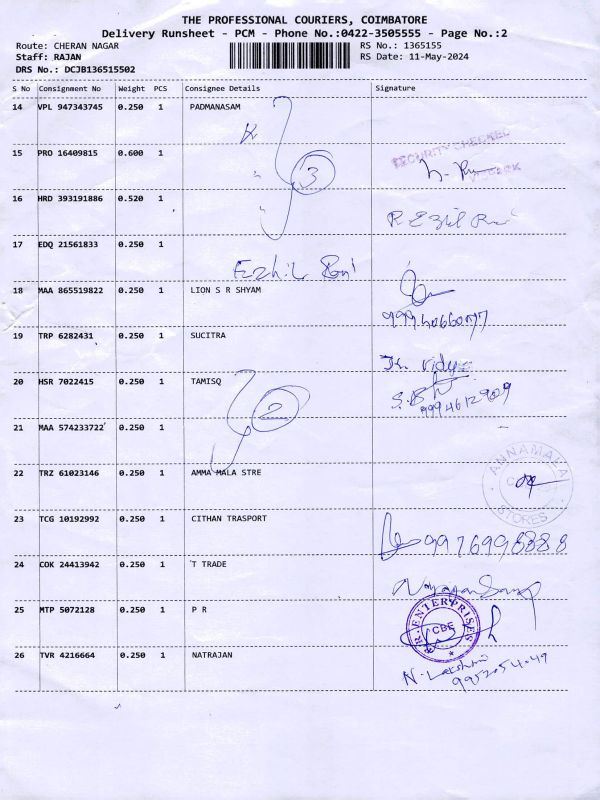 THE PROFESSIONAL COURIERS, COIMBATORE
Delivery Runsheet - PCM - Phone No.:0422-3505555 - Page No.:2
Route: CHERAN NAGAR
RS No.: 1365155
Staff: RAJAN
RS Date: 11-May-2024
DRS No.: DCJB136515502
S No Consignment No Weight PCS Consignee Details Signature
14 VPL 947343745 0.250 1 PADMANASAM
SECURITY CHECKED
15 PRO 16409815 0.600 1
3
16 HRD 393191886 0.520 1
17 EDQ 21561833 0.250 1
Ezhil Rani
18 MAA 865519822 0.250 1 LION S R SHYAM
19 TRP 6282431 0.250 1 SUCITRA
20 HSR 7022415 0.250 1 TAMISQ
2
9994612909
21 MAA 574233722 0.250 1
22 TRZ 61023146 0.250 1 AMMA MALA STRE
ANNAMALAI STORES
23 TCG 10192992 0.250 1 CITHAN TRASPORT
9976998888
24 COK 24413942 0.250 1 T TRADE
25 MTP 5072128 0.250 1 P R
P.R. ENTERPRISES
CBE
26 TVR 4216664 0.250 1 NATRAJAN
N. Lakshmi